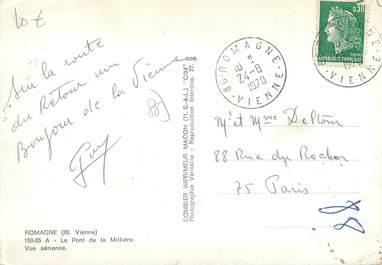 10 €
Sur la route
du Retour un
Bonjour de la Vienne
(86)
Guy
ROMAGNE (86. Vienne)
158-85 A - Le Pont de la Millière.
Vue aérienne.
COMBIER IMPRIMEUR MACON (71. S.-&-L.) "CIM"
Photographie Véritable - Reproduction Interdite. 27.
86 ROMAGNE
24-8
1970
VIENNE
0,30
REPUBLIQUE FRANCAISE
VIENNE
Mr et Mme Deltour
88 Rue du Rocher
75 Paris